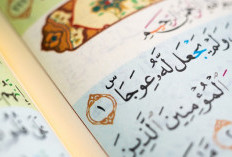 وَلَمْ يَجْعَل لَّهُ عِوَجَا ۜ
١
ٱلْمُؤْمِنِينَ ٱلَّذِينَ